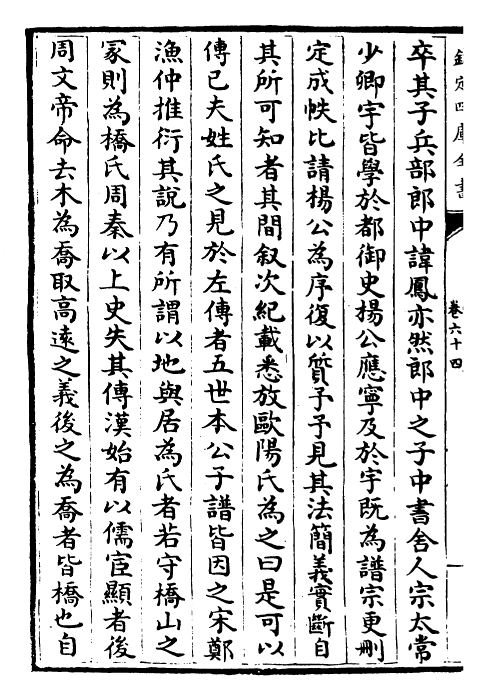 欽定四庫全書
卷六十四
卒其子兵部郎中諱鳳亦然郎中之子中書舍人宗太常
少卿宇皆學於都御史楊公應寧及於宇既為譜宗更刪
定成帙比請楊公為序復以質予予見其法簡義實斷自
其所可知者其間叙次紀載悉放歐陽氏為之曰是可以
傳已夫姓氏之見於左傳者五世本公子譜皆因之宋鄭
漁仲推衍其說乃有所謂以地與居為氏者若守橋山之
冢則為橋氏周秦以上史失其傳漢始有以儒宦顯者後
周文帝命去木為喬取高遠之義後之為喬者皆橋也自